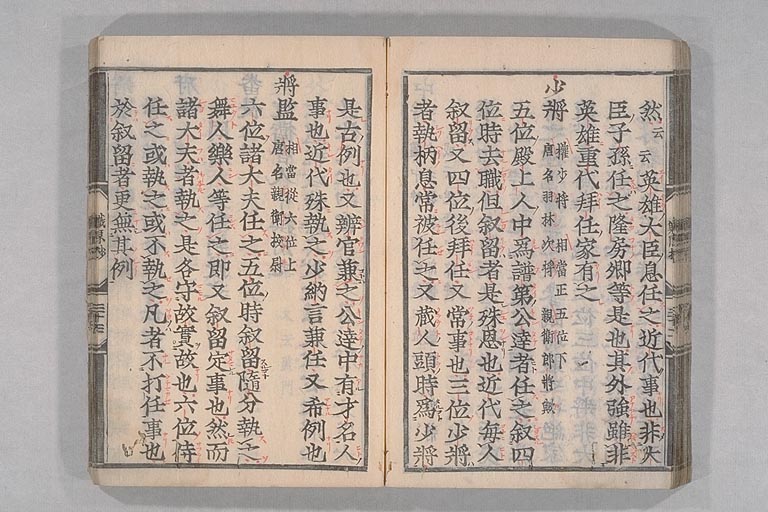 然云云英雄大臣息任之近代事也非大
臣子孫任之隆房卿等是也其外強雖非
英雄重代拜任家有之
少將 權少將 相當正五位下
唐名羽林次將 親衛郎將歟
五位殿上人中爲譜第公達者任之叙四
位時去職但叙留者是殊恩也近代每人
叙留又四位後拜任又常事也三位少將
者執柄息常被任之又藏人頭時爲少將
是古例也又辨官兼之公達中有才名人
事也近代殊執之少納言兼任又希例也
將監 相當從六位上
唐名親衛校尉
六位諸大夫任之五位時叙留隨分執之
舞人樂人等任之即又叙留定事也然而
諸大夫者執之是各守故實故也六位侍
任之或執之或不執之凡者不打任事也
於叙留者更無其例